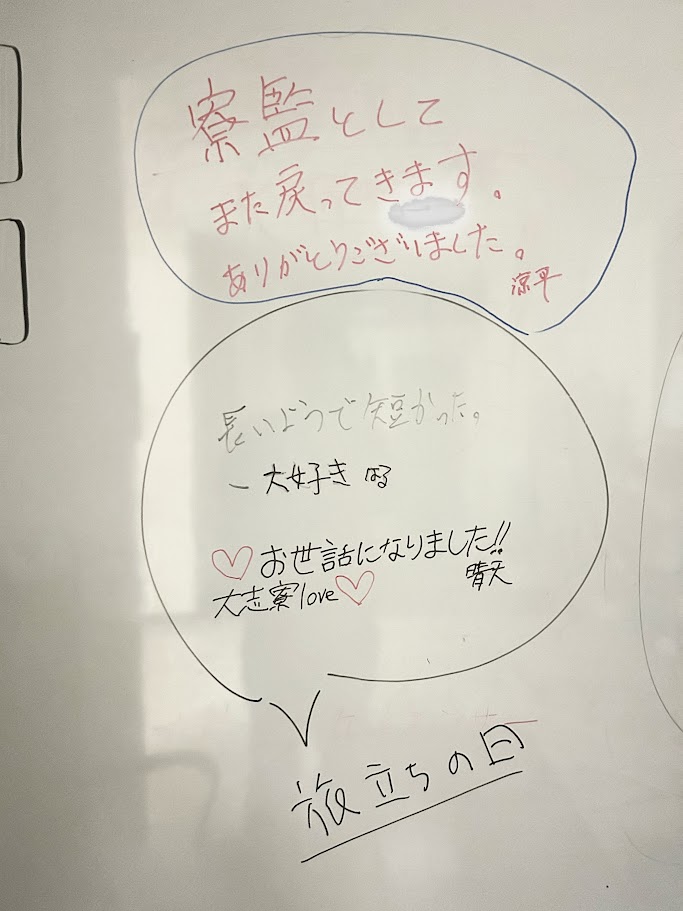 寮監として
また戻ってきます。
ありがとうございました。
涼平
長いようで短かった。
大好き はる
♡お世話になりました!!
晴天
大志寮love♡
旅立ちの日